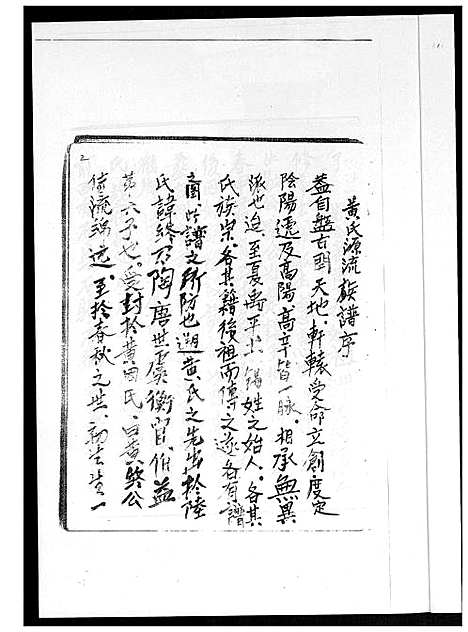 黃氏源流族譜序
蓋自盤古開天地、軒轅受命立創度定
陰陽遞及高陽、高辛皆一脉、相承無異
派也迨、至夏禹平土、錫姓之始人、各其
氏族宗、各其籍後祖而傳之遂各有譜
圖、此譜之所防也遡黃氏之先出於陸
氏諱終為陶唐世為衡官、伯益
第六子也、受封於黃國氏、曰黃、公
流遠、至於春秋之世、初生一
2